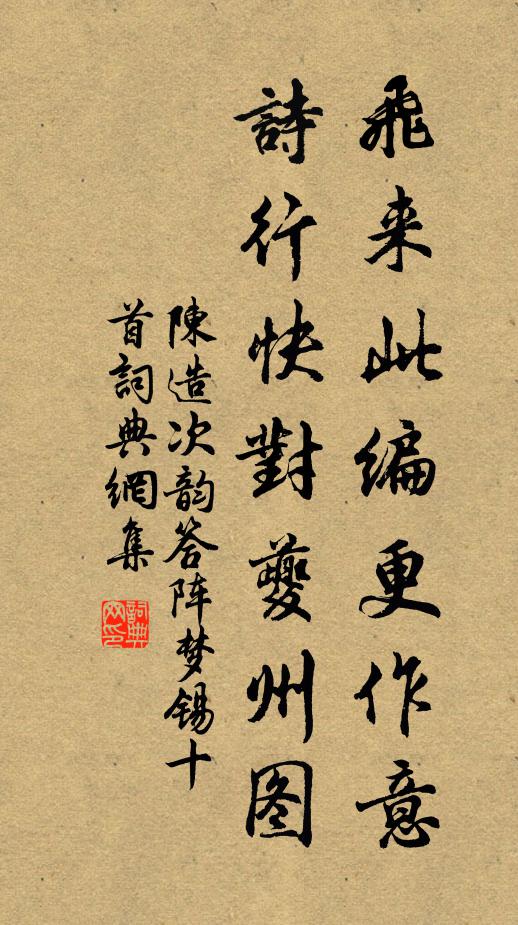 飛来此编更作意
詩行快對夔州图
陳造次韵答阵梦锡十
首詞典網集
詞典
网印